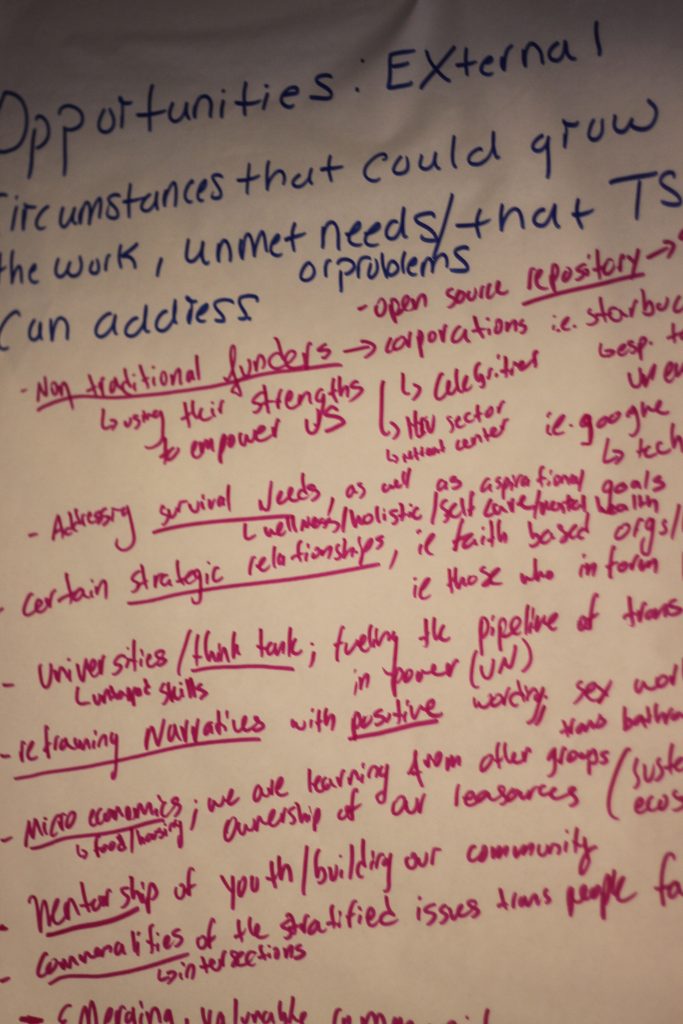 Opportunities: External
Circumstances that could grow
the work, unmet needs/that TS
or problems
can address
- open source repository →
- Non traditional funders → corporations ie. starbuc
↳ using their strengths
to empower US
↳ Celebrities
↳ esp. to
↳ HIV sector
ie. google
↳ tech
- Addressing survival needs, as well as aspirational goals
↳ wellness/holistic/self care/mental health
- certain strategic relationships, ie faith based orgs/
ie those who inform
- Universities/think tank; fueling the pipeline of trans
↳ skills
in power (UN)
- reframing Narratives with positive wording, sex wor
trans bathro
- Micro economics; we are learning from other groups
↳ food/housing
ownership of our (suste
ecos
- Mentorship of youth/building our community
- Commonalities of the stratified issues trans people fa
↳ intersections
- Emerging,